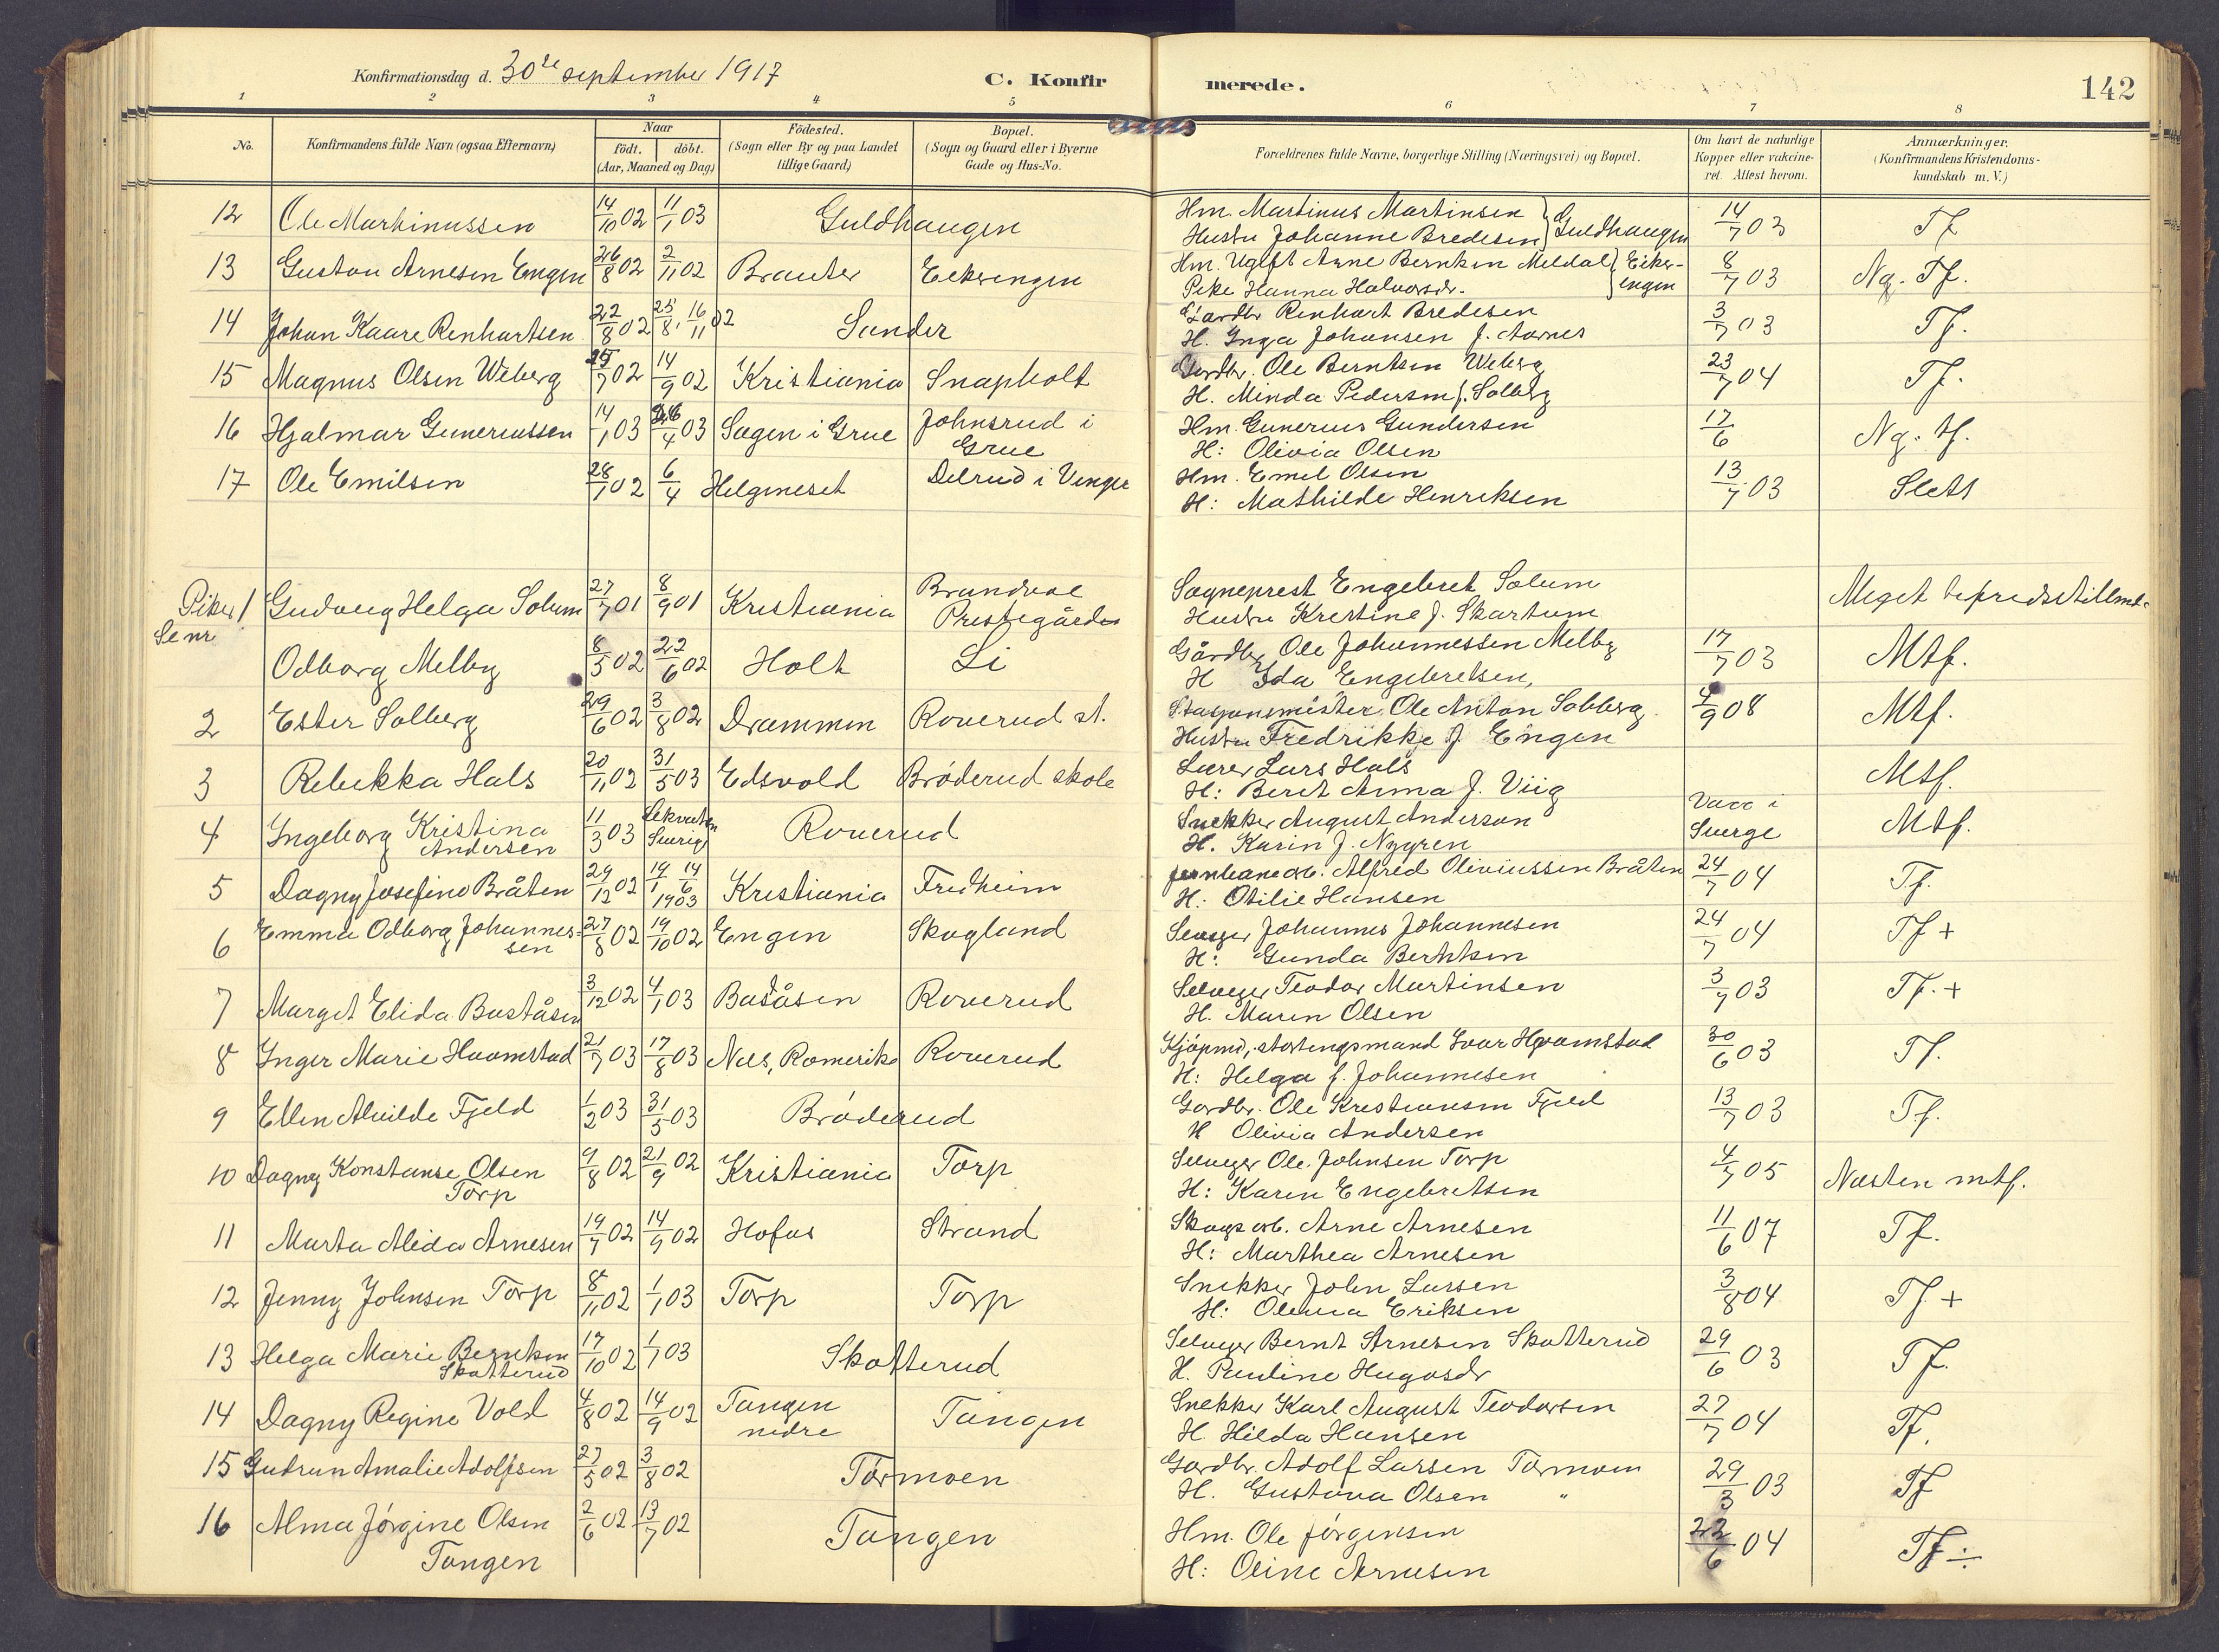 Konfirmationsdag d. 30te september 1917 C. Konfirmerede. 142
1 2 3 4 5 6 7 8
No. Konfirmandens fulde Navn (ogsaa Efternavn) Naar født. døbt. (Aar, Maaned og Dag) Fødested. (Sogn eller By og paa Landet tillige Gaard) Bopæl. (Sogn og Gaard eller i Byerne Gade og Hus-No. Forældrenes fulde Navne, borgerlige Stilling (Næringsvei) og Bopæl. Om havt de naturlige Kopper eller vakcineret. Attest herom. Anmærkninger. (Konfirmandens Kristendomskundskab m. V.)
12 Ole Martinussen 14/10 02 11/1 03 Guldhaugen Hm. Martinus Martinsen Hustru Johanne Bredesen Guldhaugen 14/7 03 Tf
13 Gustav Arnesen Engen 26/8 02 2/11 02 Brauter Eekerengen Hm. Ugift Arne Berntsen Meldal Pike Hanna Halvorsdr. Eikerengen 8/7 03 Ng. Tf.
14 Johan Kaare Renhartsen 22/8 02 25/8, 16/11 02 Sander Gardbr Renhart Bredesen H. Inga Johansen f. Aarnes 3/7 03 Tf.
15 Magnus Olsen Weberg 25/7 02 14/9 02 Kristiania Snapholt Gardbr. Ole Berntsen Weberg H. Minda Pedersen f. Solberg 23/7 04 Tf.
16 Hjalmar Gunerussen 14/1 03 /4 03 Sagen i Grue Johnsrud i Grue Hm. Gunerius Gundersen H: Olivia Olsen 17/6 Ng. tf.
17 Ole Emilsen 28/1 02 6/4 Helgeneset Delrud i Vinger Hm. Emil Olsen H: Mathilde Henriksen 13/7 03 Slett
Piker 1 Gudveig Helga Solum 27/7 01 8/9 01 Kristiania Brandval Prestegården Sogneprest Engebret Solum Hustru Kristine f. Skartum Meget tilfredsstillende
Se nr
Odborg Melby 8/5 02 22/6 02 Holt Li Gårdbr Ole Johannessen Melby H Ida Engebretsen, 17/7 03 Mtf.
2 Ester Solberg 29/6 02 3/8 02 Drammen Roverud st. Stasjonsmester Ole Anton Solberg. Hustru Fredrikke f Engen 4/9 08 Mtf.
3 Rebekka Hals 20/11 02 31/5 03 Edsvold Brøderud skole Lærer Lars Hals H: Beret Anna f. Viig Mtf.
4 Ingeborg Kristina Andersen 11/3 03 Roverud Snekker August Anderson H. Karin f. Nygren Vacc i Sverge Mtf.
5 Dagny Josefine Bråten 29/12 02 19/1 14/6 1903 Kristiania Fredheim Jernbanearb. Alfred Oliviussen Bråten H: Otilie Hansen 24/7 04 Tf.
6 Emma Odborg Johannessen 27/8 02 19/10 02 Engen Skogland Selveger Johannes Johannesen H: Gunda Berntsen 24/7 04 Tf +
7 Margit Elida Baståsen 3/12 02 4/1 03 Baståsen Roverud Selveger Teodor Martinsen H. Maren Olsen 3/7 03 Tf. +
8 Inger Marie Hvamstad 21/7 03 17/8 03 Nes, Romerike Roverud Kjøpmd, stortingsmand Ivar Hvamstad H: Helga f. Johannesen 30/6 03 Tf.
9 Ellen Alvilde Fjeld 1/2 03 31/5 03 Brøderud Gardbr. Ole Kristiansen Fjeld H Olivia Andersen 13/7 03 Tf.
10 Dagny Konstanse Olsen Torp 9/8 02 21/9 02 Kristiania Torp Selveger Ole Johnsen Torp H: Karen Engebretsen 4/7 05 Næsten mtf.
11 Marta Alida Arnesen 19/7 02 14/9 02 Hofos Strand Skogsarb. Arne Arnesen H: Marthea Arnesen 11/6 07 Tf.
12 Jenny Johnsen Torp 8/11 02 1/1 03 Torp Torp Snekker John Larsen H: Olema Eriksen 3/8 04 Tf +
13 Helga Marie Berntsen Skotterud 17/10 02 1/1 03 Skotterud Selveger Bernt Arnesen Skotterud H. Pauline Hugosdr 29/6 03 Tf.
14 Dagny Regine Vold 4/8 02 14/9 02 Tangen nedre Tangen Snekker Karl August Teodorsen H. Hilda Hansen 27/7 04 Tf.
15 Gudrun Amalie Adolfsen 27/5 02 3/8 02 Tørmoen Gardbr. Adolf Larsen Tørmoen H. Gustava Olsen " 29/3 03 Tf
16 Alma Jørgine Olsen Tangen 2/6 02 13/7 02 Tangen Hm. Ole Jørgensen H: Oline Arnesen 22/6 04 Tf ÷